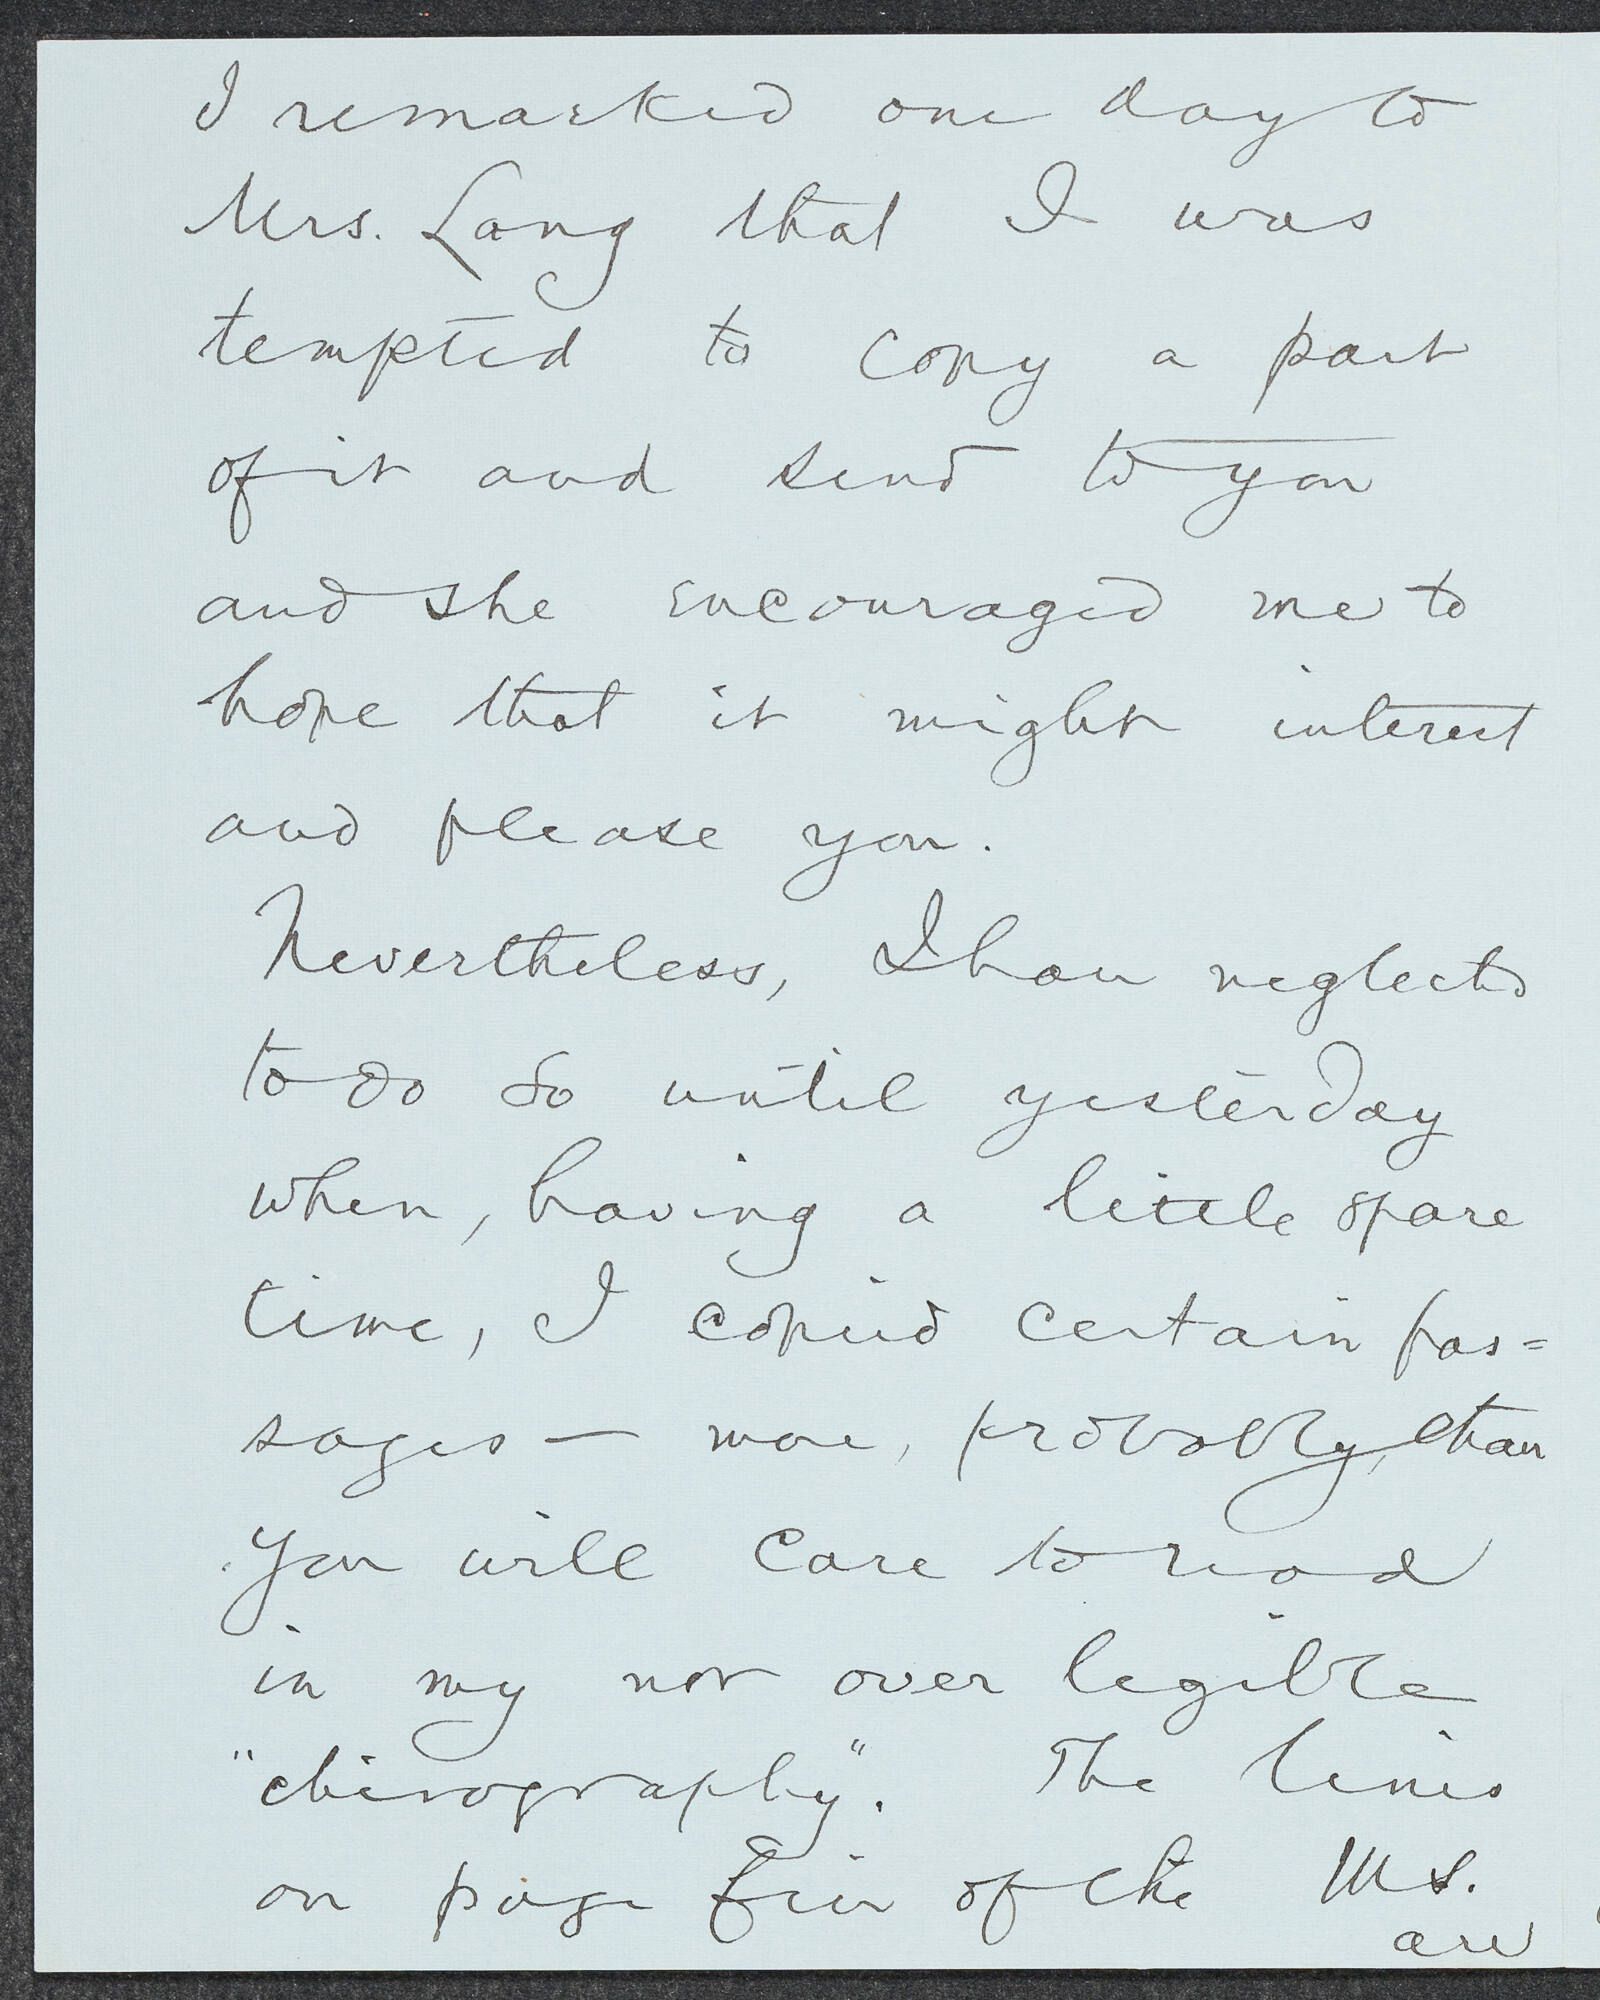 I remarked one day to
Mrs. Lang that I was
tempted to copy a part
of it and send to you
and she encouraged me to
hope that it might interest
and please you.
Nevertheless, I have neglected
to do so until yesterday
when, having a little spare
time, I copied certain pas=
sages — more, probably, than
you will care to read
in my not over legible
"chirography". The lines
on page five of the Ms.
are